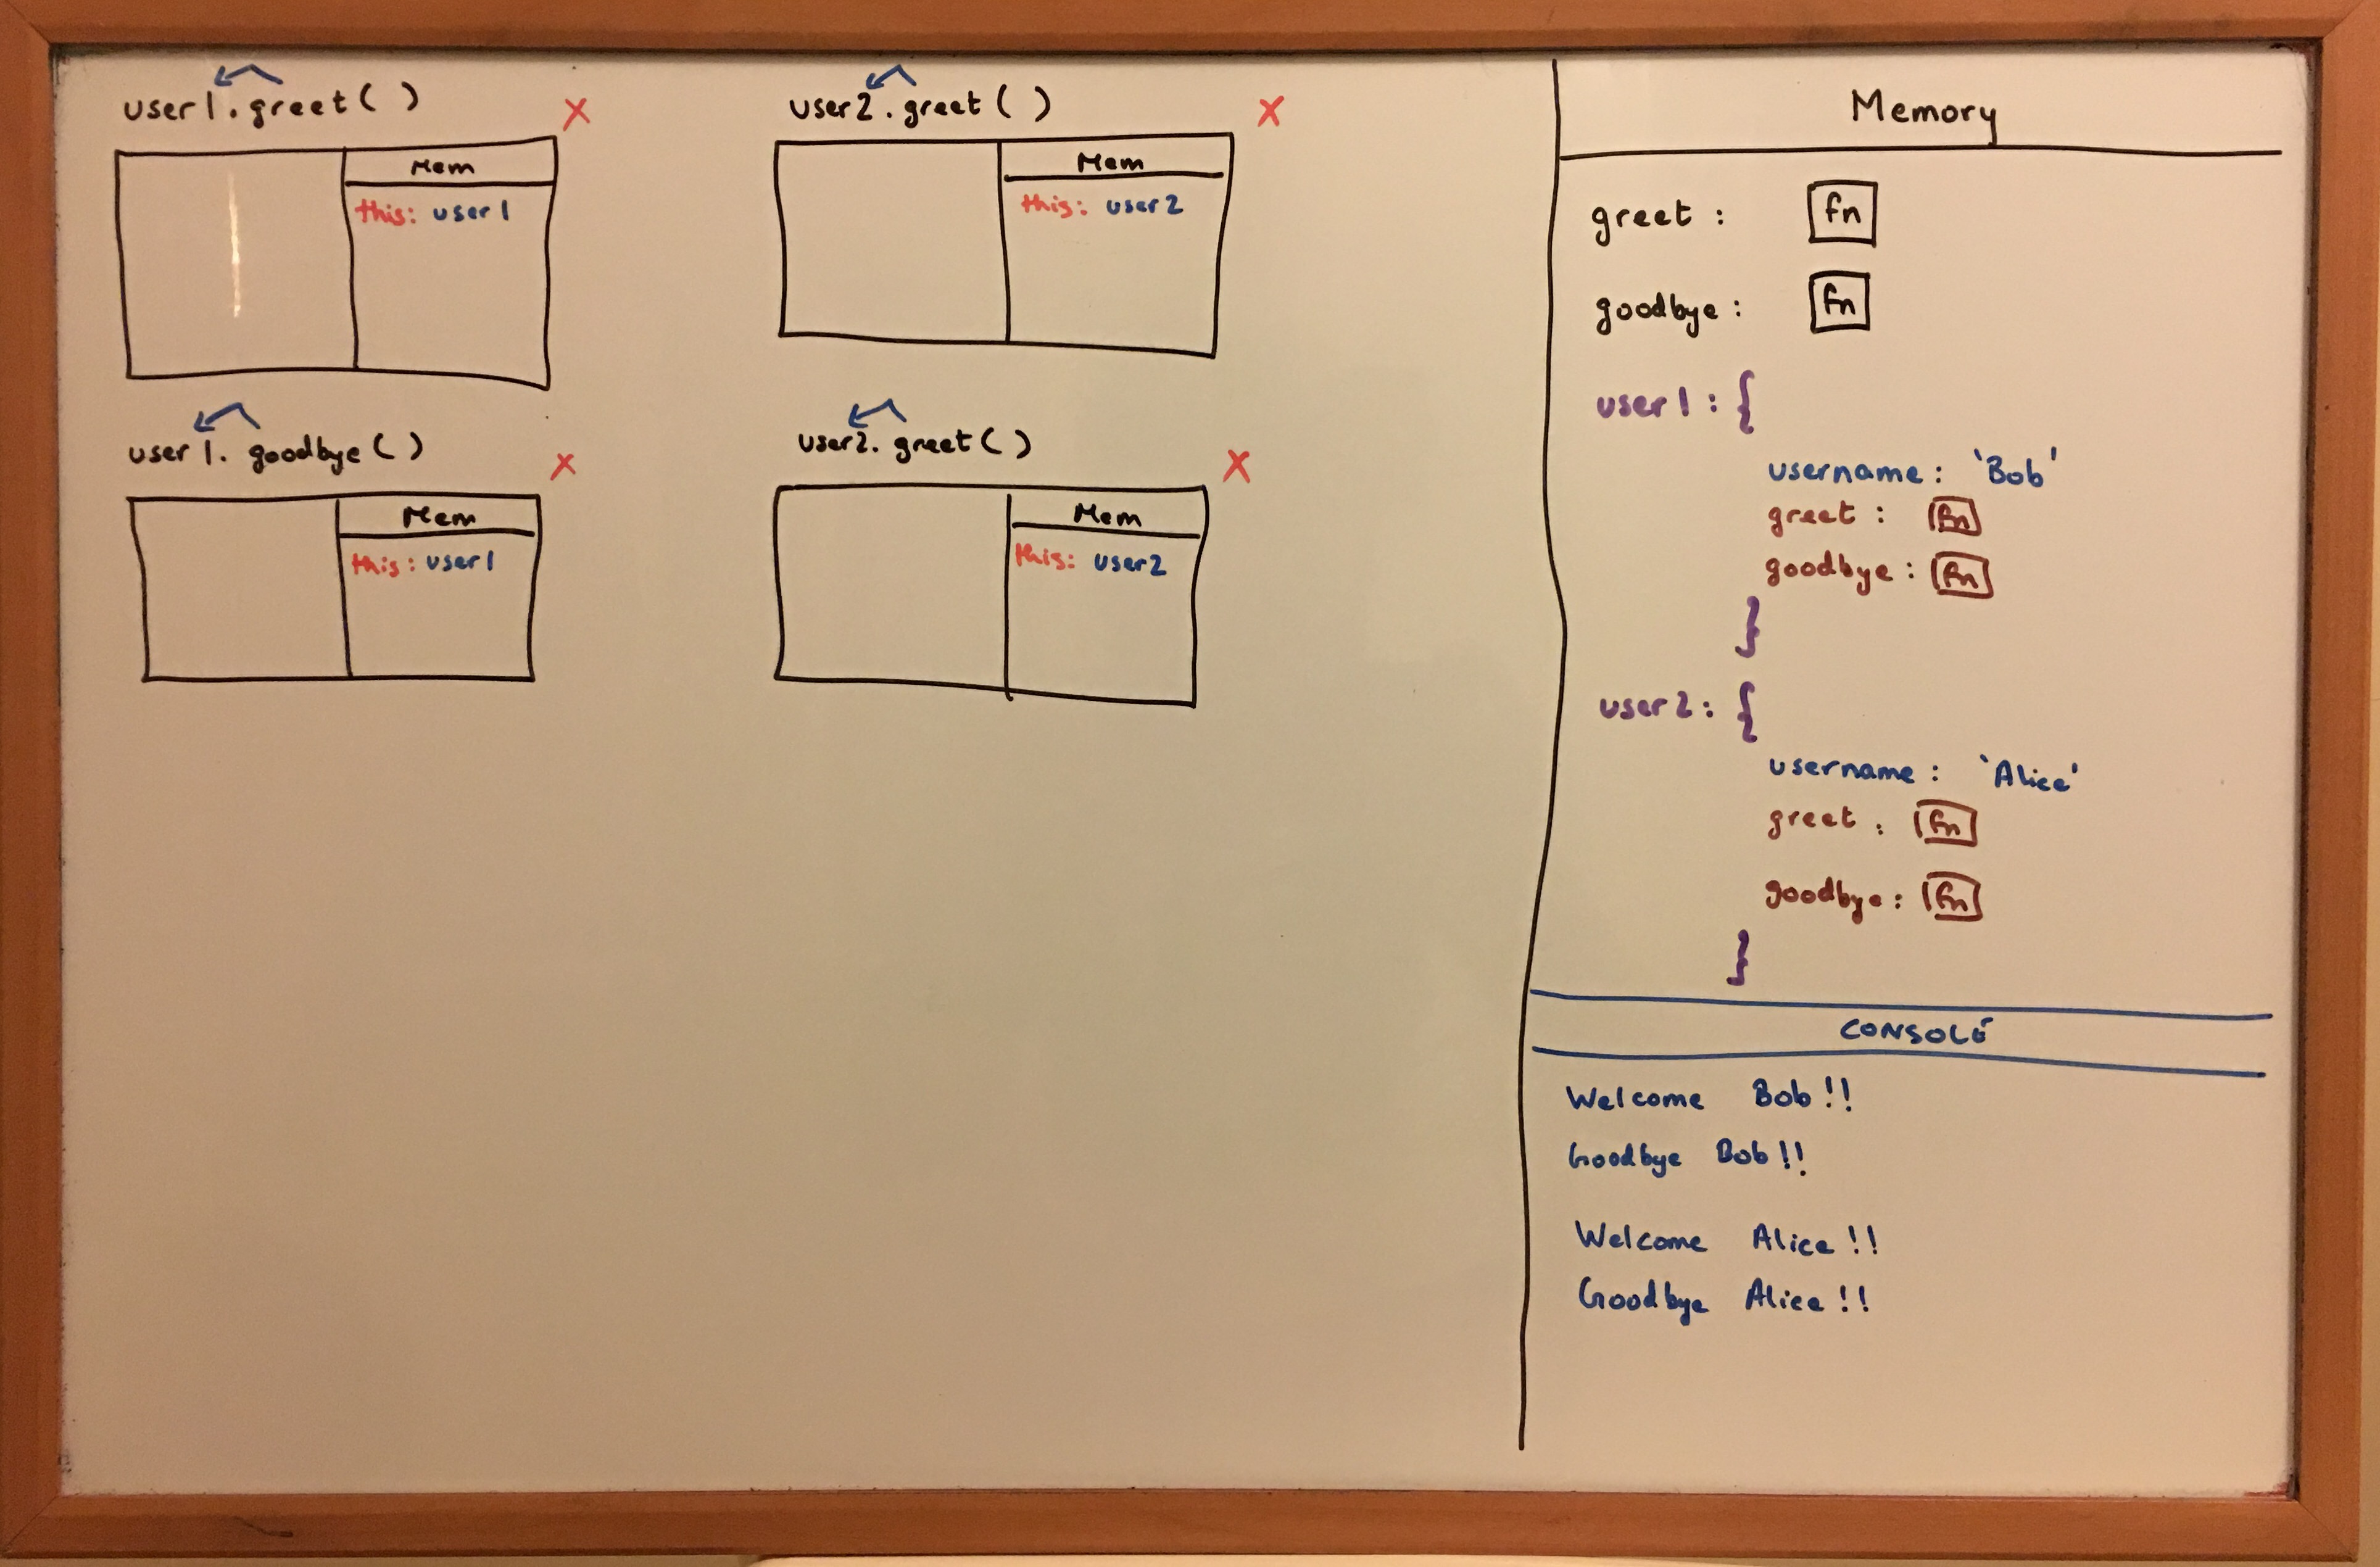 user1.greet( )
Mem
this: user1
user1. goodbye( )
Mem
this: user1
user2.greet( )
Mem
this: user2
user2. greet( )
Mem
this: user2
Memory
greet : fn
goodbye : fn
user1 : {
username : 'Bob'
greet : fn
goodbye : fn
}
user2 : {
username : 'Alice'
greet : fn
goodbye : fn
}
CONSOLE
Welcome Bob!!
Goodbye Bob!!
Welcome Alice!!
Goodbye Alice!!